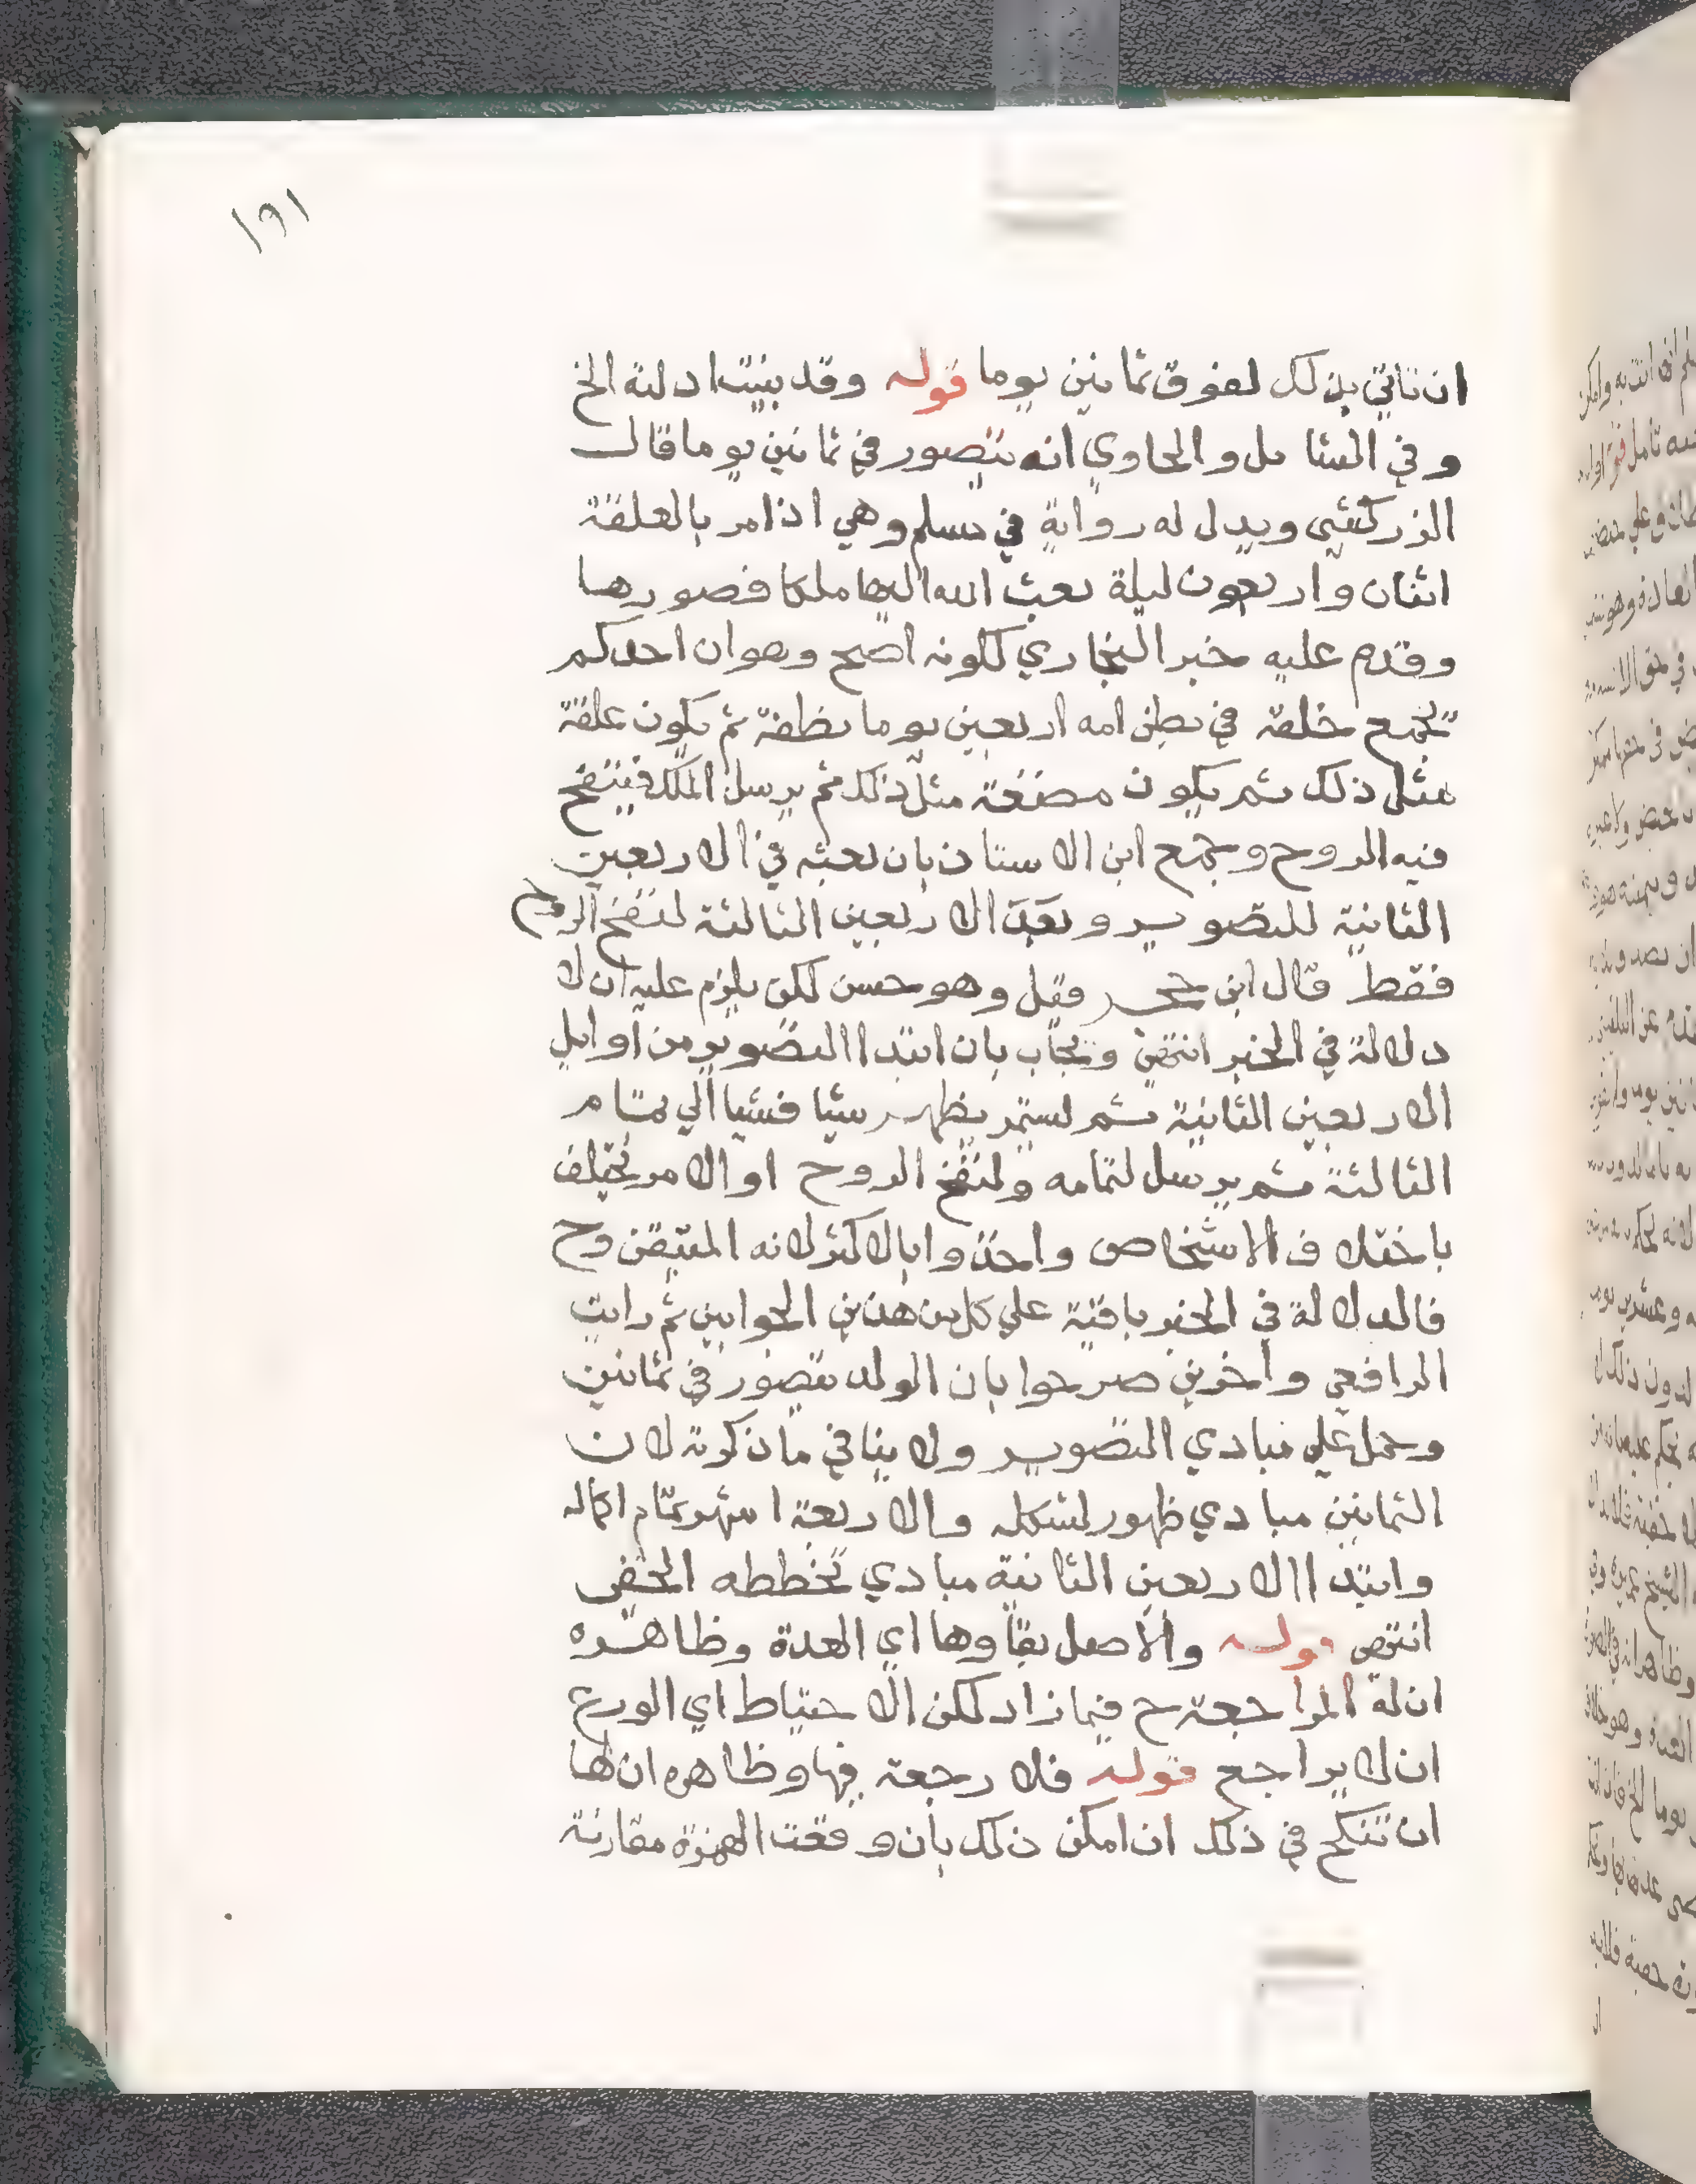 ١٩١
ان تاتي بذلك لفوق ثمانين يوما قوله وقد بينت ادلته الخ
وفي الشامل والحاوي انه يتصور في ثمانين يوما قال
الزركشي ويدل له رواية في مسلم وهي اذا مر بالعلقة
اثنان واربعون ليلة بعث الله اليها ملكا فصورها
وقدم عليه خبر البخاري لكونه اصح وهو ان احدكم
يجمع خلقه في بطن امه اربعين يوما نطفة ثم يكون علقة
مثل ذلك ثم يكون مضغة مثل ذلك ثم يرسل الملك فينفخ
فيه الروح وجمع ابن الاستاذ بان بعثه في الاربعين
الثانية للتصوير وبعد الاربعين الثالثة لنفخ الروح
فقط قال ابن حجر وقيل وهو حسن لكن يلزم عليه ان لا
دلالة في الخبر انتهى ويجاب بان ابتدا التصوير من اوايل
الاربعين الثانية ثم يستمر يظهر شيا فشيا الي تمام
الثالثة ثم يرسل لتمامه ولنفخ الروح او الامر يختلف
باختلاف الاشخاص واخذوا بالاكثر لانه المتيقن وح
فالدلالة في الخبر باقية علي كل من هذين الجوابين ثم رايت
الرافعي واخرين صرحوا بان الولد يتصور في ثمانين
وحمل علي مبادي التصوير ولا ينافي ما ذكرته لان
الثمانين مبادي ظهور لشكله والاربعة اشهر تمام اكماله
وابتدا الاربعين الثانية مبادي تخططه الخفي
انتهى قوله والاصل بقاوها اي العدة وظاهره
ان له المراجعة ح فيما زاد لكن الاحتياط اي الورع
ان لا يراجع قوله فلا رجعة فيها وظاهره ان لها
ان تنكح في ذلك ان امكن ذلك بان وقعت الهمزة مقارنة